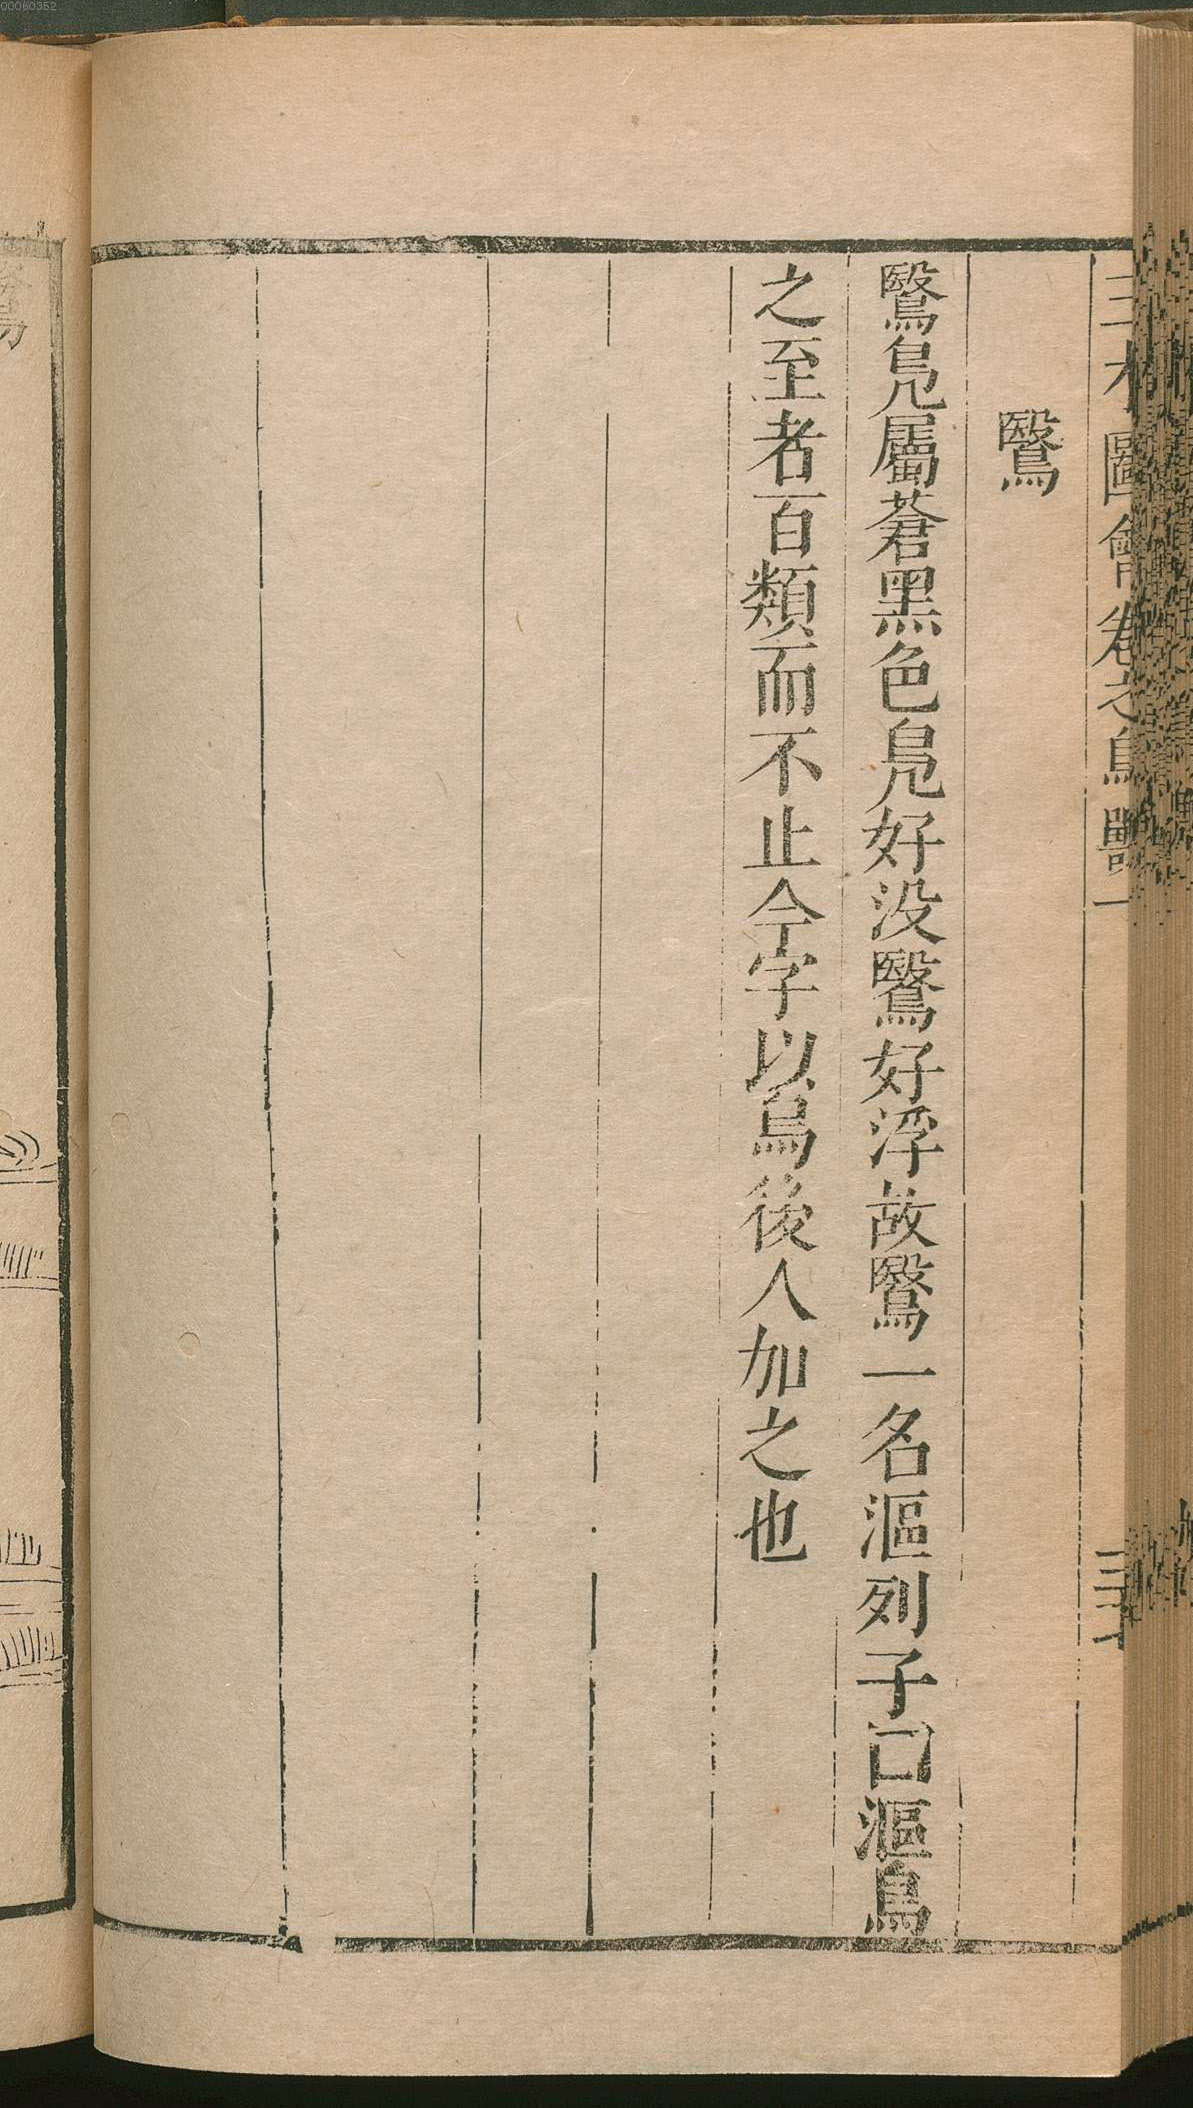 三才圖會卷之鳥獸一 三十七
鷖
鷖鳬屬蒼黑色鳬好没鷖好浮故鷖一名漚列子曰漚鳥
之至者百類而不止今字以鳥後人加之也
00060352